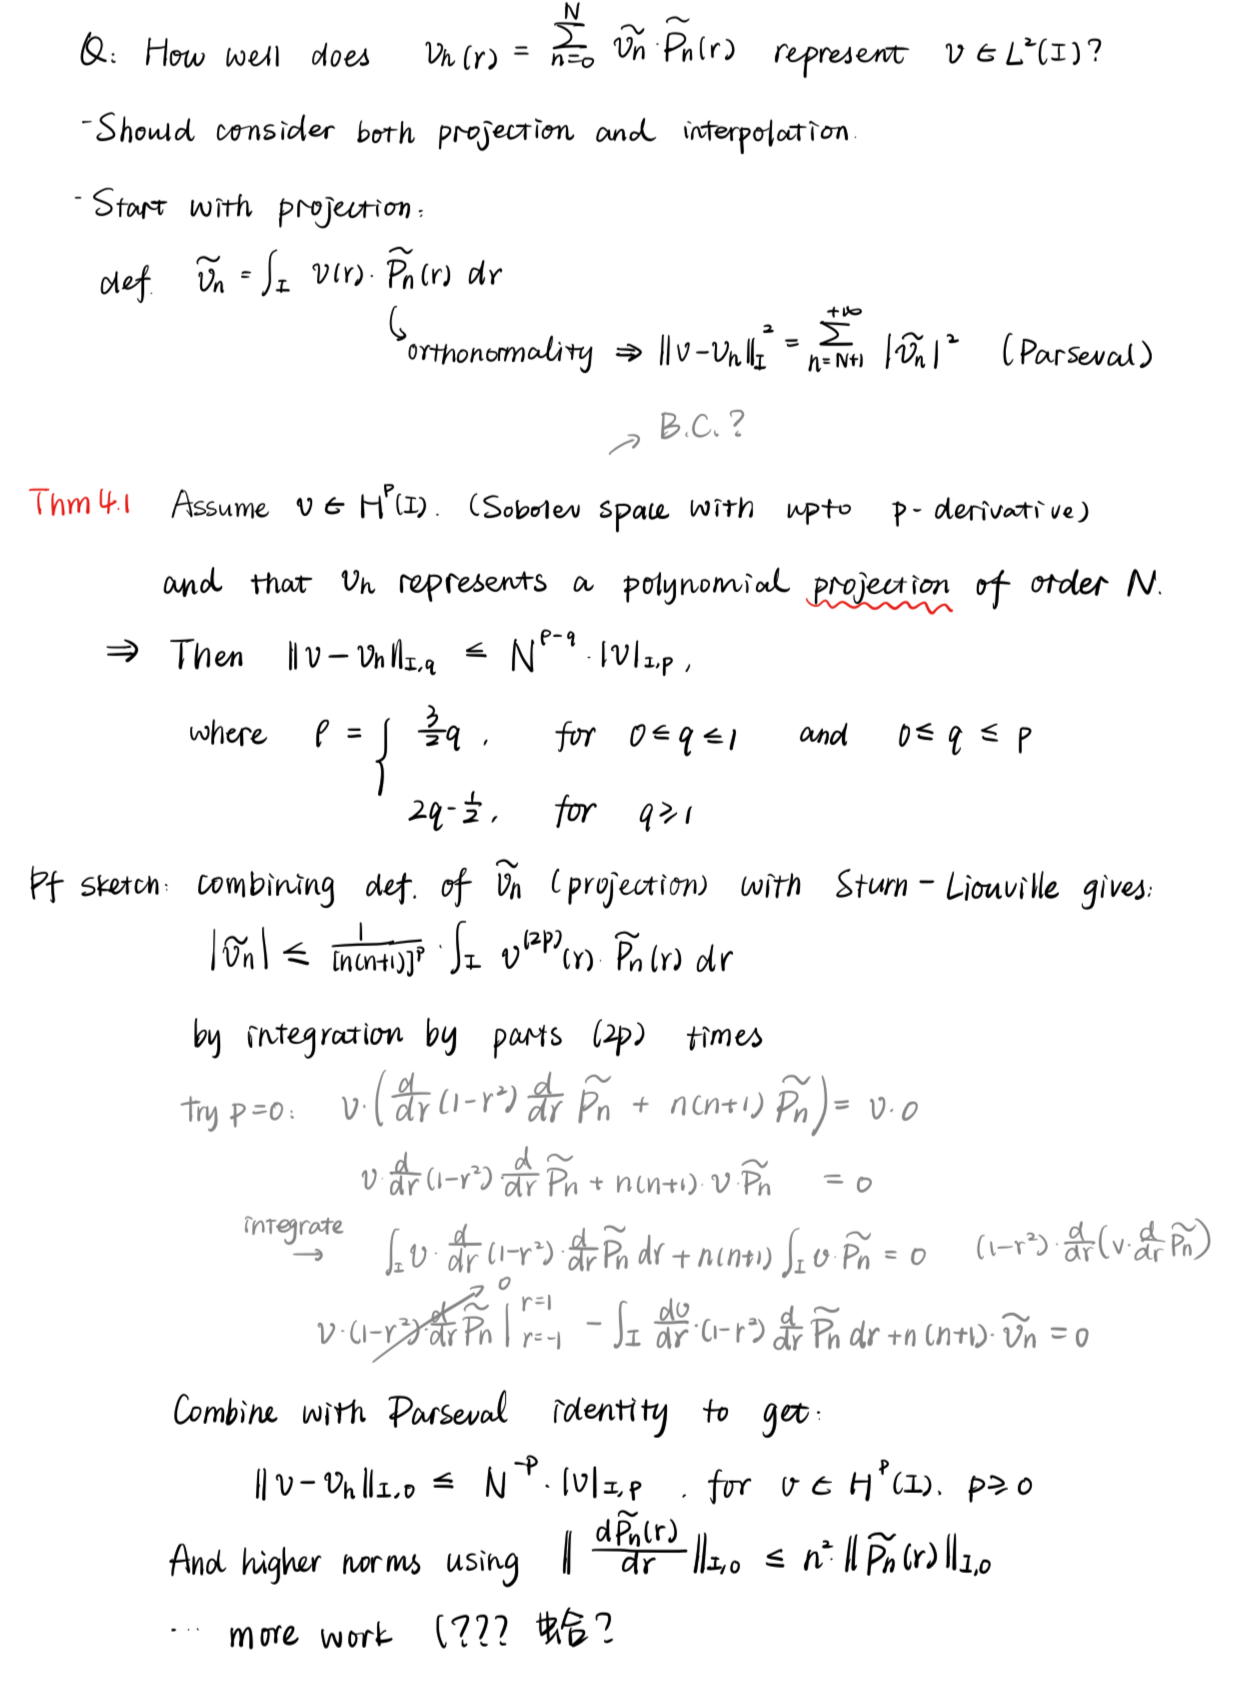 Q: How well does v_h(r) = \sum_{n=0}^{N} \tilde{v}_n · \tilde{P}_n(r) represent v ∈ L²(I)?
- Should consider both projection and interpolation.
- Start with projection:
def. \tilde{v}_n = ∫_I v(r) · \tilde{P}_n(r) dr
↳ orthonormality ⇒ ‖v - v_h‖_I² = \sum_{n=N+1}^{+∞} |\tilde{v}_n|² (Parseval)
↗ B.C.?
Thm 4.1 Assume v ∈ H^p(I). (Sobolev space with upto p-derivative)
and that v_h represents a polynomial projection of order N.
⇒ Then ‖v - v_h‖_{I,q} ≤ N^{ρ-q} · |v|_{I,p},
where ρ = { \frac{3}{2}q, for 0 ≤ q ≤ 1 and 0 ≤ q ≤ p
2q - \frac{1}{2}, for q ≥ 1
Pf sketch: combining def. of \tilde{v}_n (projection) with Sturn-Liouville gives:
|\tilde{v}_n| ≤ \frac{1}{[n(n+1)]^p} · ∫_I v^{(2p)}(r) · \tilde{P}_n(r) dr
by integration by parts (2p) times
try p=0: v · ( \frac{d}{dr} (1-r²) \frac{d}{dr} \tilde{P}_n + n(n+1) \tilde{P}_n ) = v · 0
v · \frac{d}{dr} (1-r²) \frac{d}{dr} \tilde{P}_n + n(n+1) · v · \tilde{P}_n = 0
integrate → ∫_I v · \frac{d}{dr} (1-r²) · \frac{d}{dr} \tilde{P}_n dr + n(n+1) ∫_I v · \tilde{P}_n = 0 (1-r²) · \frac{d}{dr} (v · \frac{d}{dr} \tilde{P}_n)
v · (1-r²) · \frac{d}{dr} \tilde{P}_n |_{r=-1}^{r=1} 0 - ∫_I \frac{dv}{dr} · (1-r²) \frac{d}{dr} \tilde{P}_n dr + n(n+1) · \tilde{v}_n = 0
Combine with Parseval identity to get:
‖v - v_h‖_{I,0} ≤ N^{-p} · |v|_{I,p}, for v ∈ H^p(I), p ≥ 0
And higher norms using ‖ \frac{d\tilde{P}_n(r)}{dr} ‖_{I,0} ≤ n² · ‖\tilde{P}_n(r)‖_{I,0}
... more work (??? 蛤?